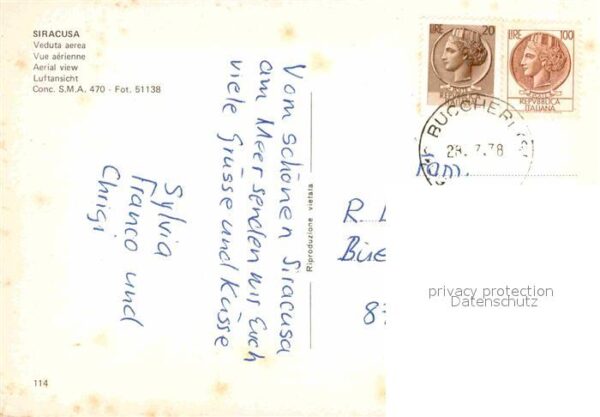 SIRACUSA
Veduta aerea
Vue aérienne
Aerial view
Luftansicht
Conc. S.M.A. 470 - Fot. 51138
Vom schönen Siracusa
am Meer senden wir Euch
viele Grüsse und Küsse
Sylvia
Franco und
Chrigi
114
Riproduzione vietata
LIRE 20
REPUBBLICA
ITALIANA
LIRE 100
REPVBBLICA
ITALIANA
BUCCHERI
28.7.78
Fam.
R
8
privacy protection
Datenschutz